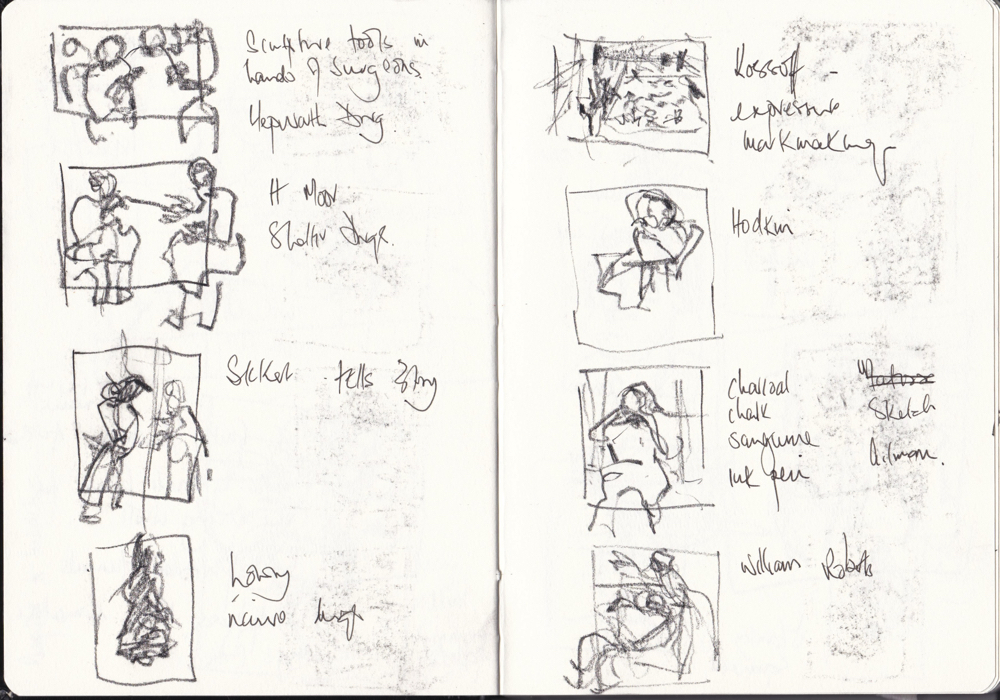 Sculpture tools in
hands of surgeons
Hepworth
H Moor
Sickert tells story
Lowry
Kossoff -
expressive
markmaking
Hodkin
charcoal
chalk
sanguine
ink pen
Sketch
William Roberts